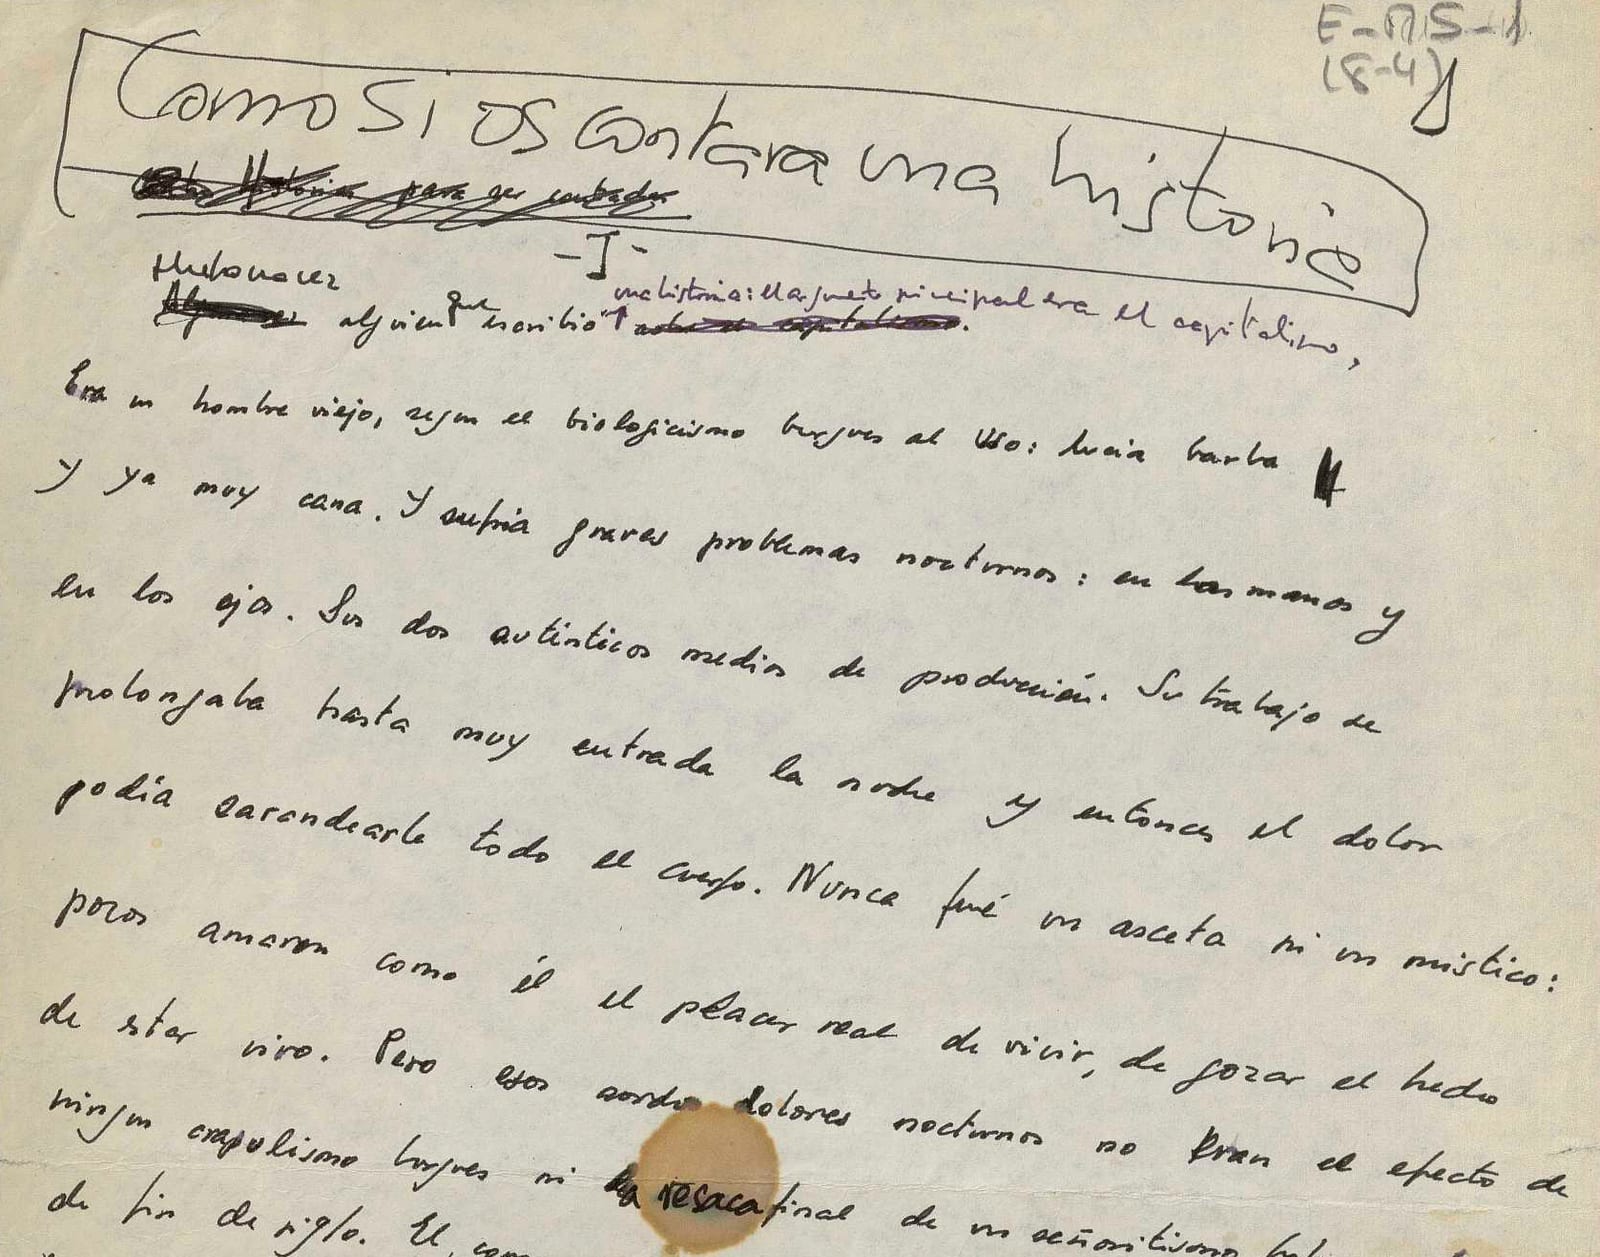 E-MS-1
(8-4)
Como si os contara una historia
Historia para ser contada
-I-
una historia: el aspecto principal era el capitalismo,
alguien que escribió sobre el capitalismo.
Era un hombre viejo, segun el biologicismo burgues al uso: lucia barba
y ya muy cana. Y sufria graves problemas nocturnos: en las manos y
en los ojos. Sus dos auténticos medios de producción. Su trabajo se
prolongaba hasta muy entrada la noche y entonces el dolor
podía zarandearle todo el cuerpo. Nunca fué un asceta ni un mistico:
pocos amaron como él el placer real de vivir, de gozar el hecho
de estar vivo. Pero esos sordos dolores nocturnos no eran el efecto de
ningun crapulismo burgues ni la resaca final de un señoritismo
de fin de siglo. El, como